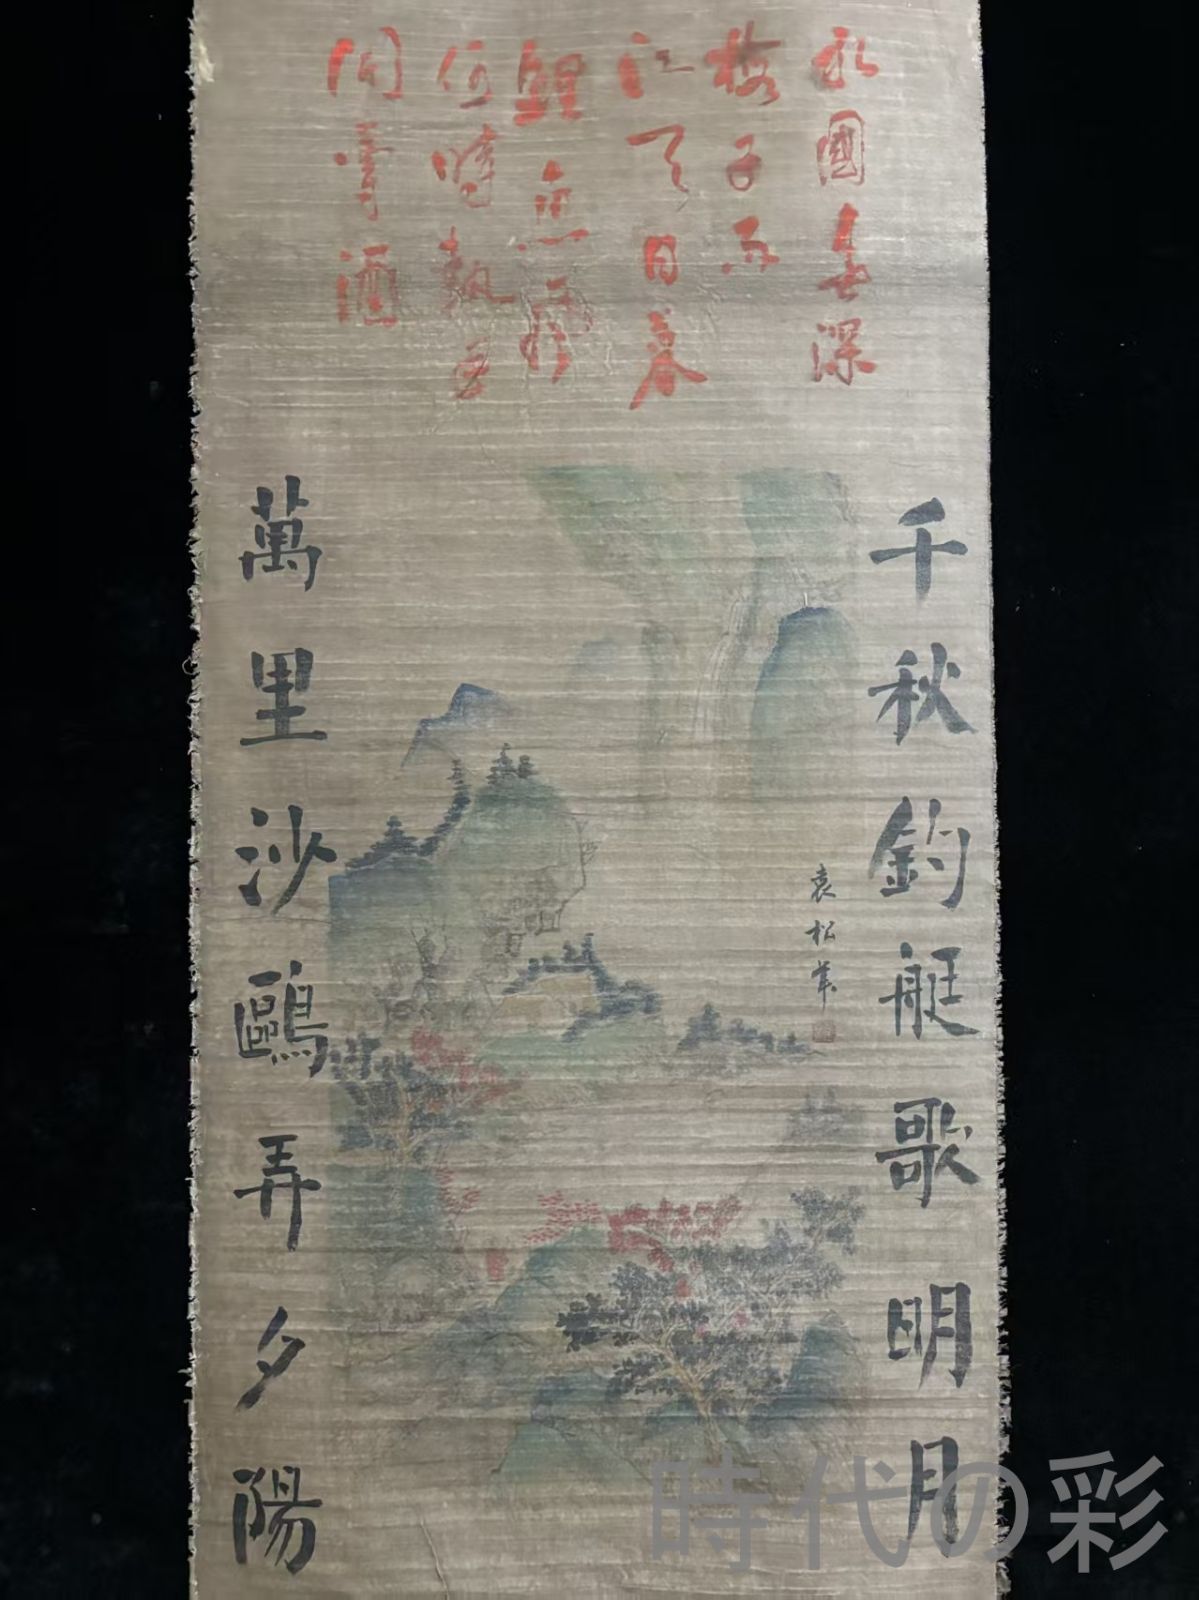 國春深
梅子雨
江天日暮
鯉魚風
何時
酒
千秋釣艇歌明月
袁松年
萬里沙鷗弄夕陽
時代の彩